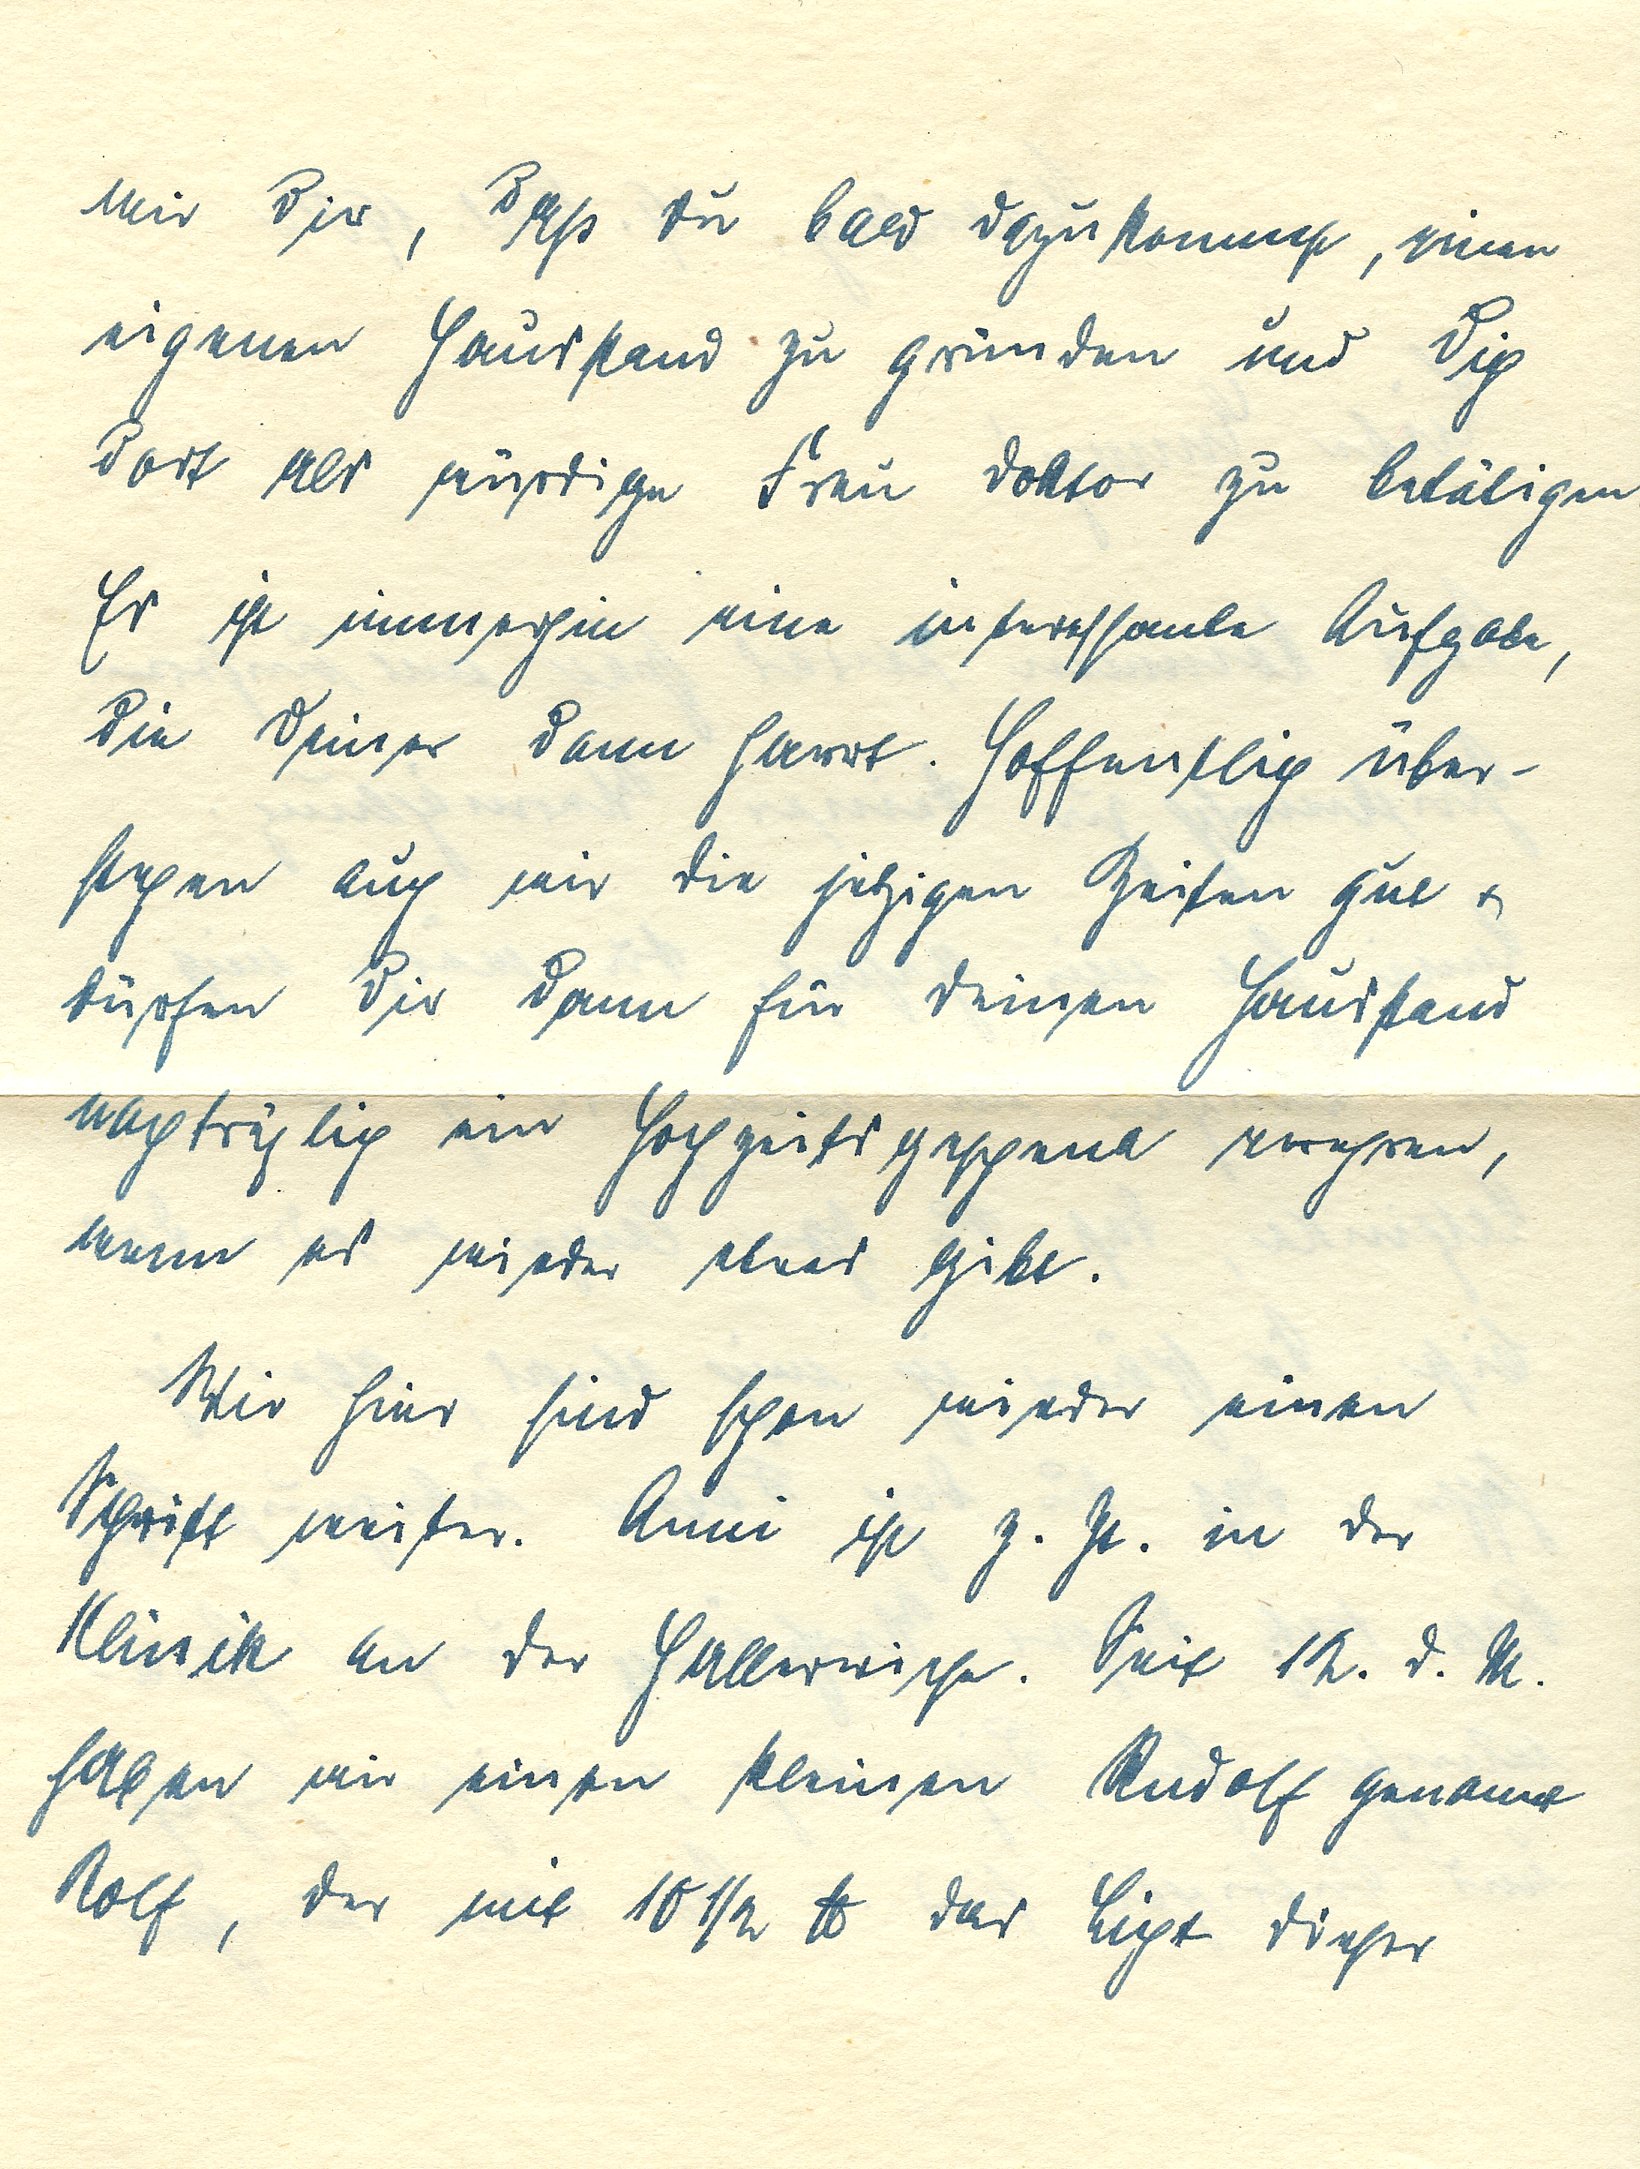 wir Dir, daß Du bald dazu kommst, einen
eigenen Hausstand zu gründen und Dich
dort als würdige Frau Doktor zu betätigen.
Es ist immerhin eine interessante Aufgabe,
die Deiner dann harrt. Hoffentlich über-
stehen auch wir die jetzigen Zeiten gut &
dürfen Dir dann für Deinen Hausstand
nachträglich ein Hochzeitsgeschenk verehren,
wenn es wieder etwas gibt.
Wir hier sind schon wieder einen
Schritt weiter. Anni ist z. Zt. in der
Klinik an der Hallerwiese. Seit 12. d. M.
haben wir einen kleinen Rudolf genannt
Rolf, der mit 10 1/2 ℔ das Licht dieser